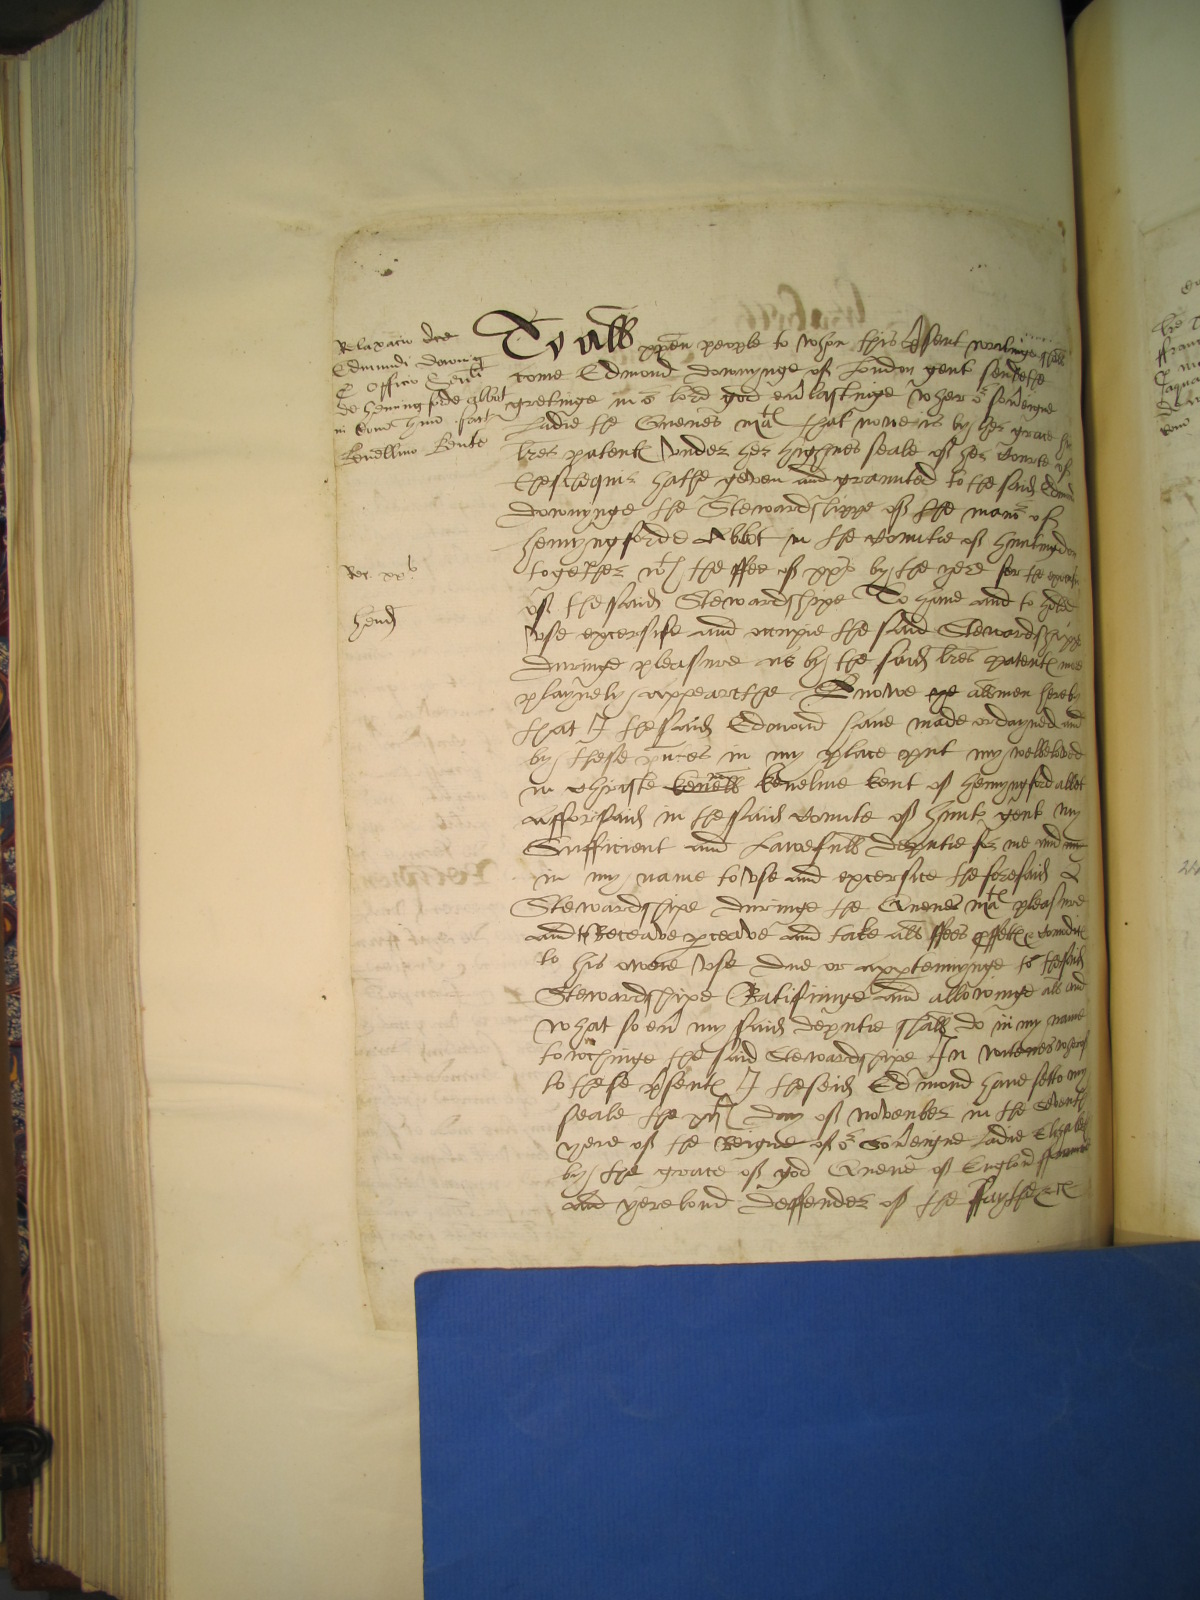 Relaxacio dce
Edmundi Downyng
de officio Senli
de hemingforde abbot
in Com hunt fact
Kenellmo Kente
Rec xx s
hend
To all xpen people to whom this psent writinge shall
come Edmond Downynge of London gent sendethe
gretinge in or lord god evlastinge Wher or soveigne
Ladie the Quenes matie that nowe is by her graces
lres patent under her highnes seale of her Courte of
theschequir hathe geven and graunted to the said Edmd
Downynge the Stewardshippe of the manor of
hemyngforde Abbot in the Countie of huntingdon
together wth the ffee of xxs by the yere for the
of the said Stewardshipe To have and to hold
use excersise and occupie the said Stewardshippe
duringe pleasure as by the said lres patent more
playnely appearethe Knowe ye all men hereby
that I the said Edmond have made ordayned and
by these pntes in my place put my wellbeloved
in Christe kenell kenelme kent of hemyngford abbot
afforsaid in the said Countie of hunt gent my
Sufficient and Lawefull deputie for me and
in my name to use and excersice the foresaid
Stewardshipe duringe the Quenes matie pleasure
and to Receave pceave and take all ffees pffett & comodit
to his owne use due or apptennynge to the said
Stewardshipe Ratifiinge and allowinge all and
what so ev my said deputie shall do in my name
towchinge the said Stewardshipe In witenes wherof
to these psent I the seid Edmond have sette my
seale the day of november in the
yere of the Reigne of or Soveigne Ladie Elizabeth
by the grace of god Quene of England ffraunce
and yerelond deffender of the ffaythe etc